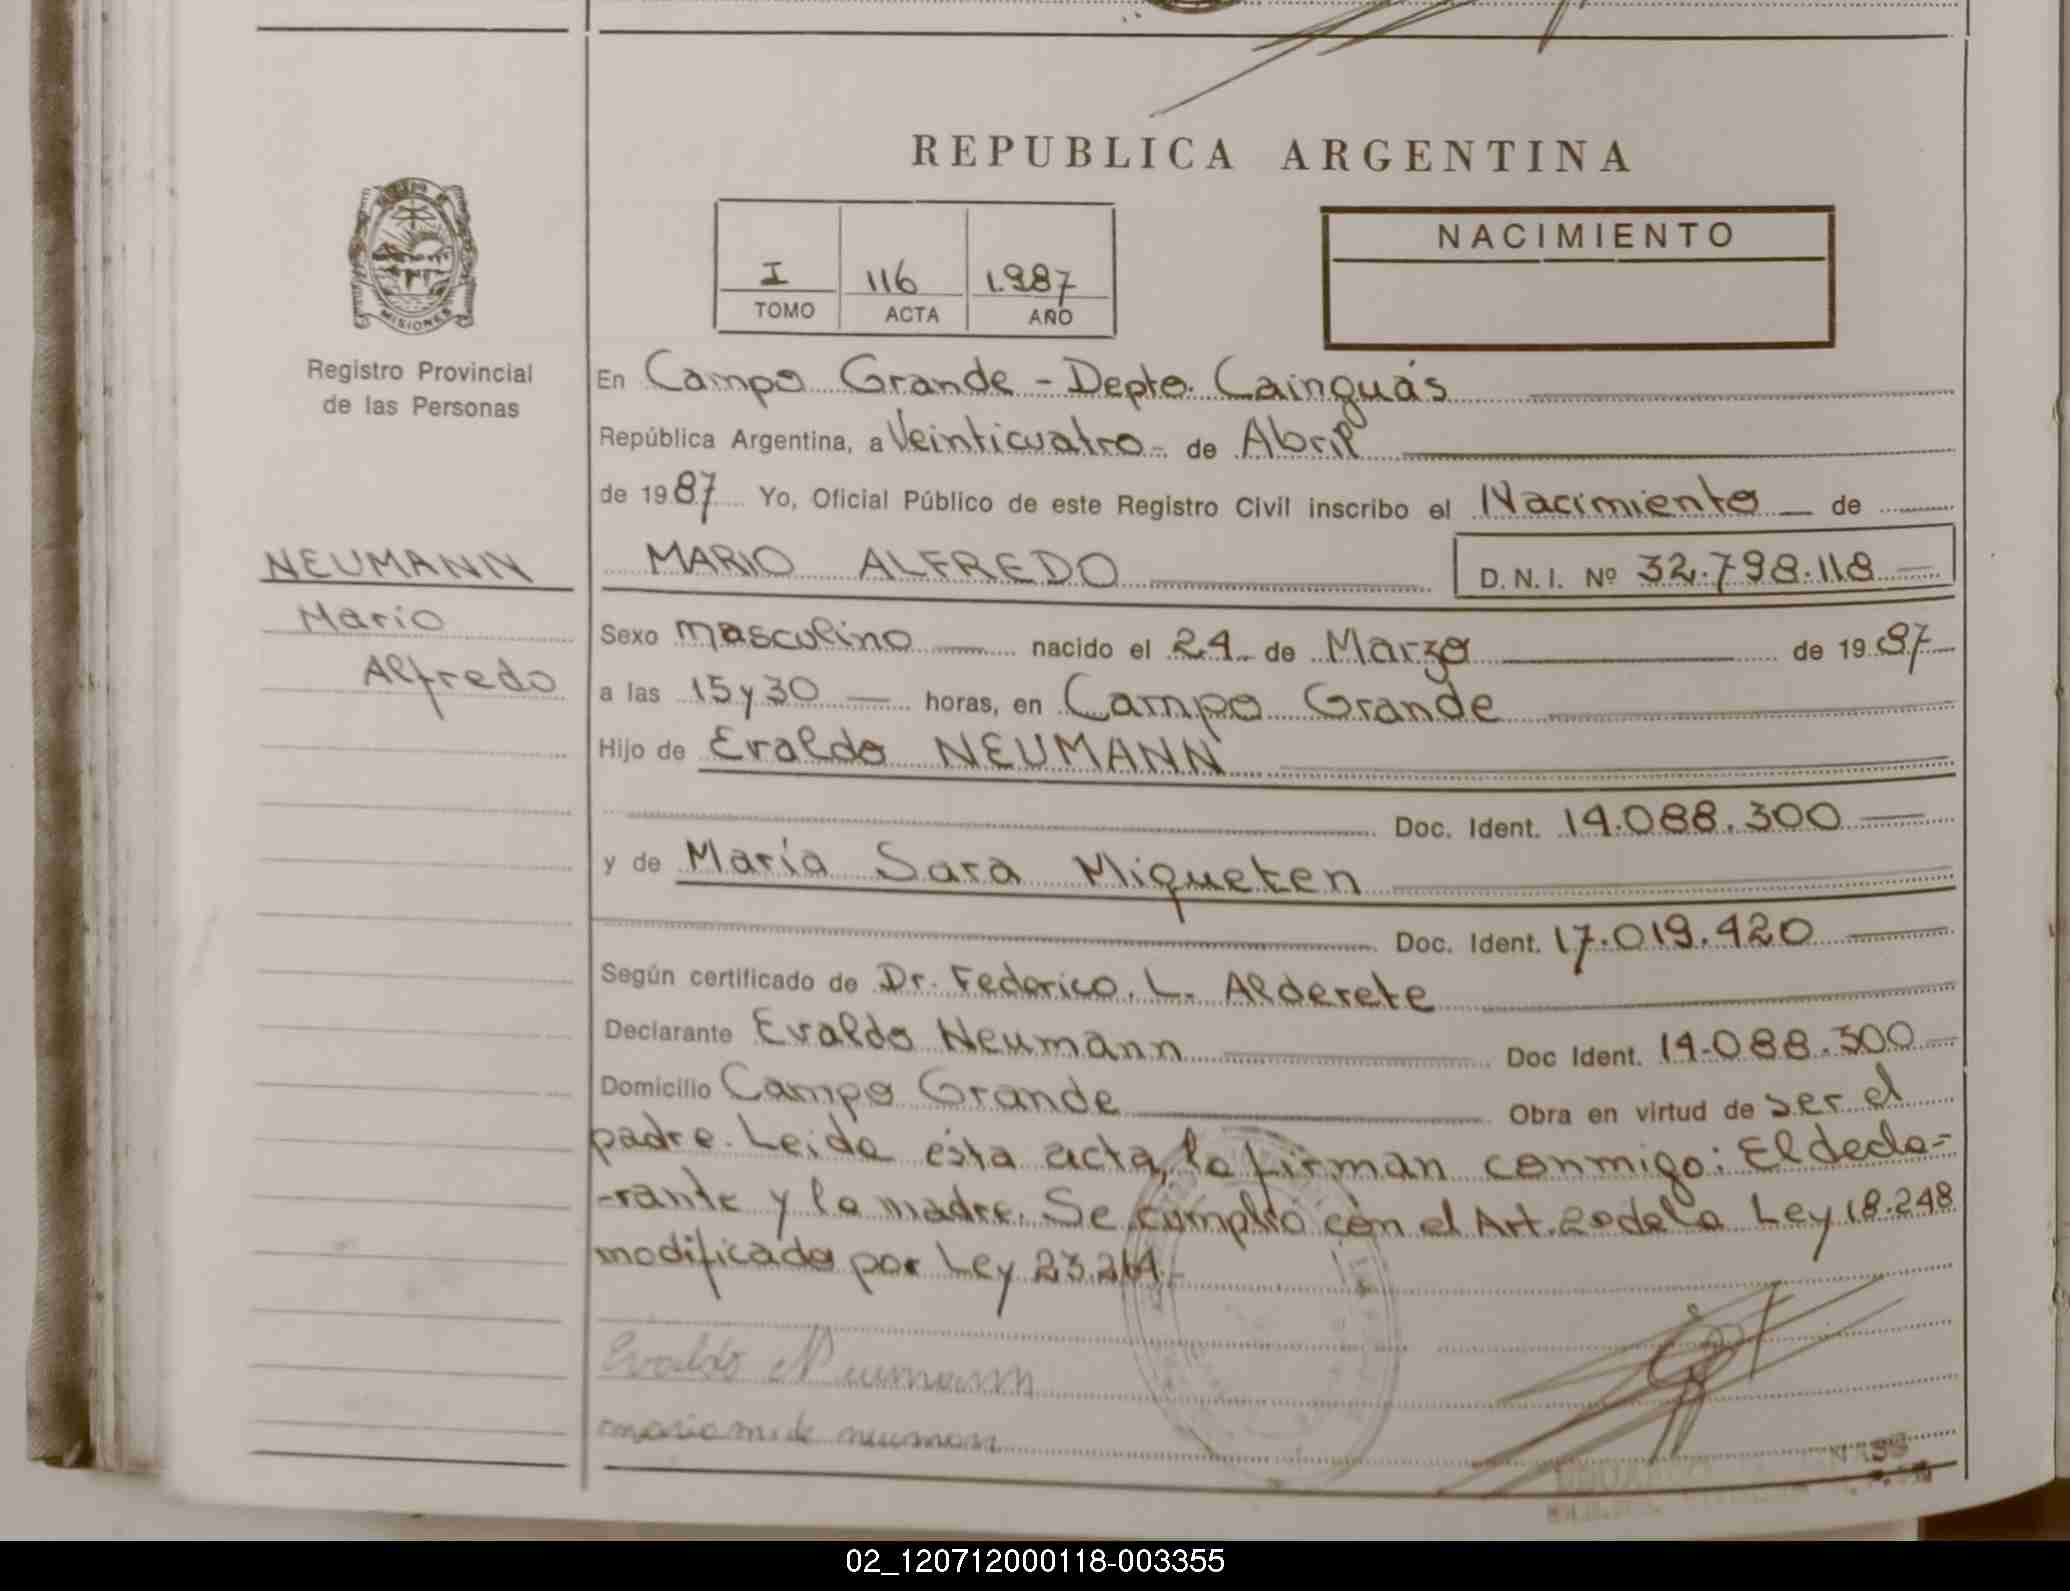 REPUBLICA ARGENTINA
MISIONES
Registro Provincial
de las Personas
I 116 1.987
TOMO ACTA AÑO
NACIMIENTO
En Campo Grande - Depto. Cainguás
República Argentina, a Veinticuatro - de Abril
de 1987 Yo, Oficial Público de este Registro Civil inscribo el Nacimiento de
NEUMANN
Mario
Alfredo
MARIO ALFREDO D.N.I. Nº 32.798.118
Sexo masculino nacido el 24 de Marzo de 1987
a las 15 y 30 horas, en Campo Grande
Hijo de Evaldo NEUMANN
Doc. Ident. 14.088.300
y de María Sara Miqueten
Doc. Ident. 17.019.420
Según certificado de Dr. Federico. L. Alderete
Declarante Evaldo Neumann Doc Ident. 14.088.300
Domicilio Campo Grande Obra en virtud de ser el
padre. Leida ésta acta, la firman conmigo: El decla-
-rante y la madre. Se cumplió con el Art. 20 de la Ley 18.248
modificado por Ley 23.264.-
Evaldo Neumann
neuman
02_120712000118-003355